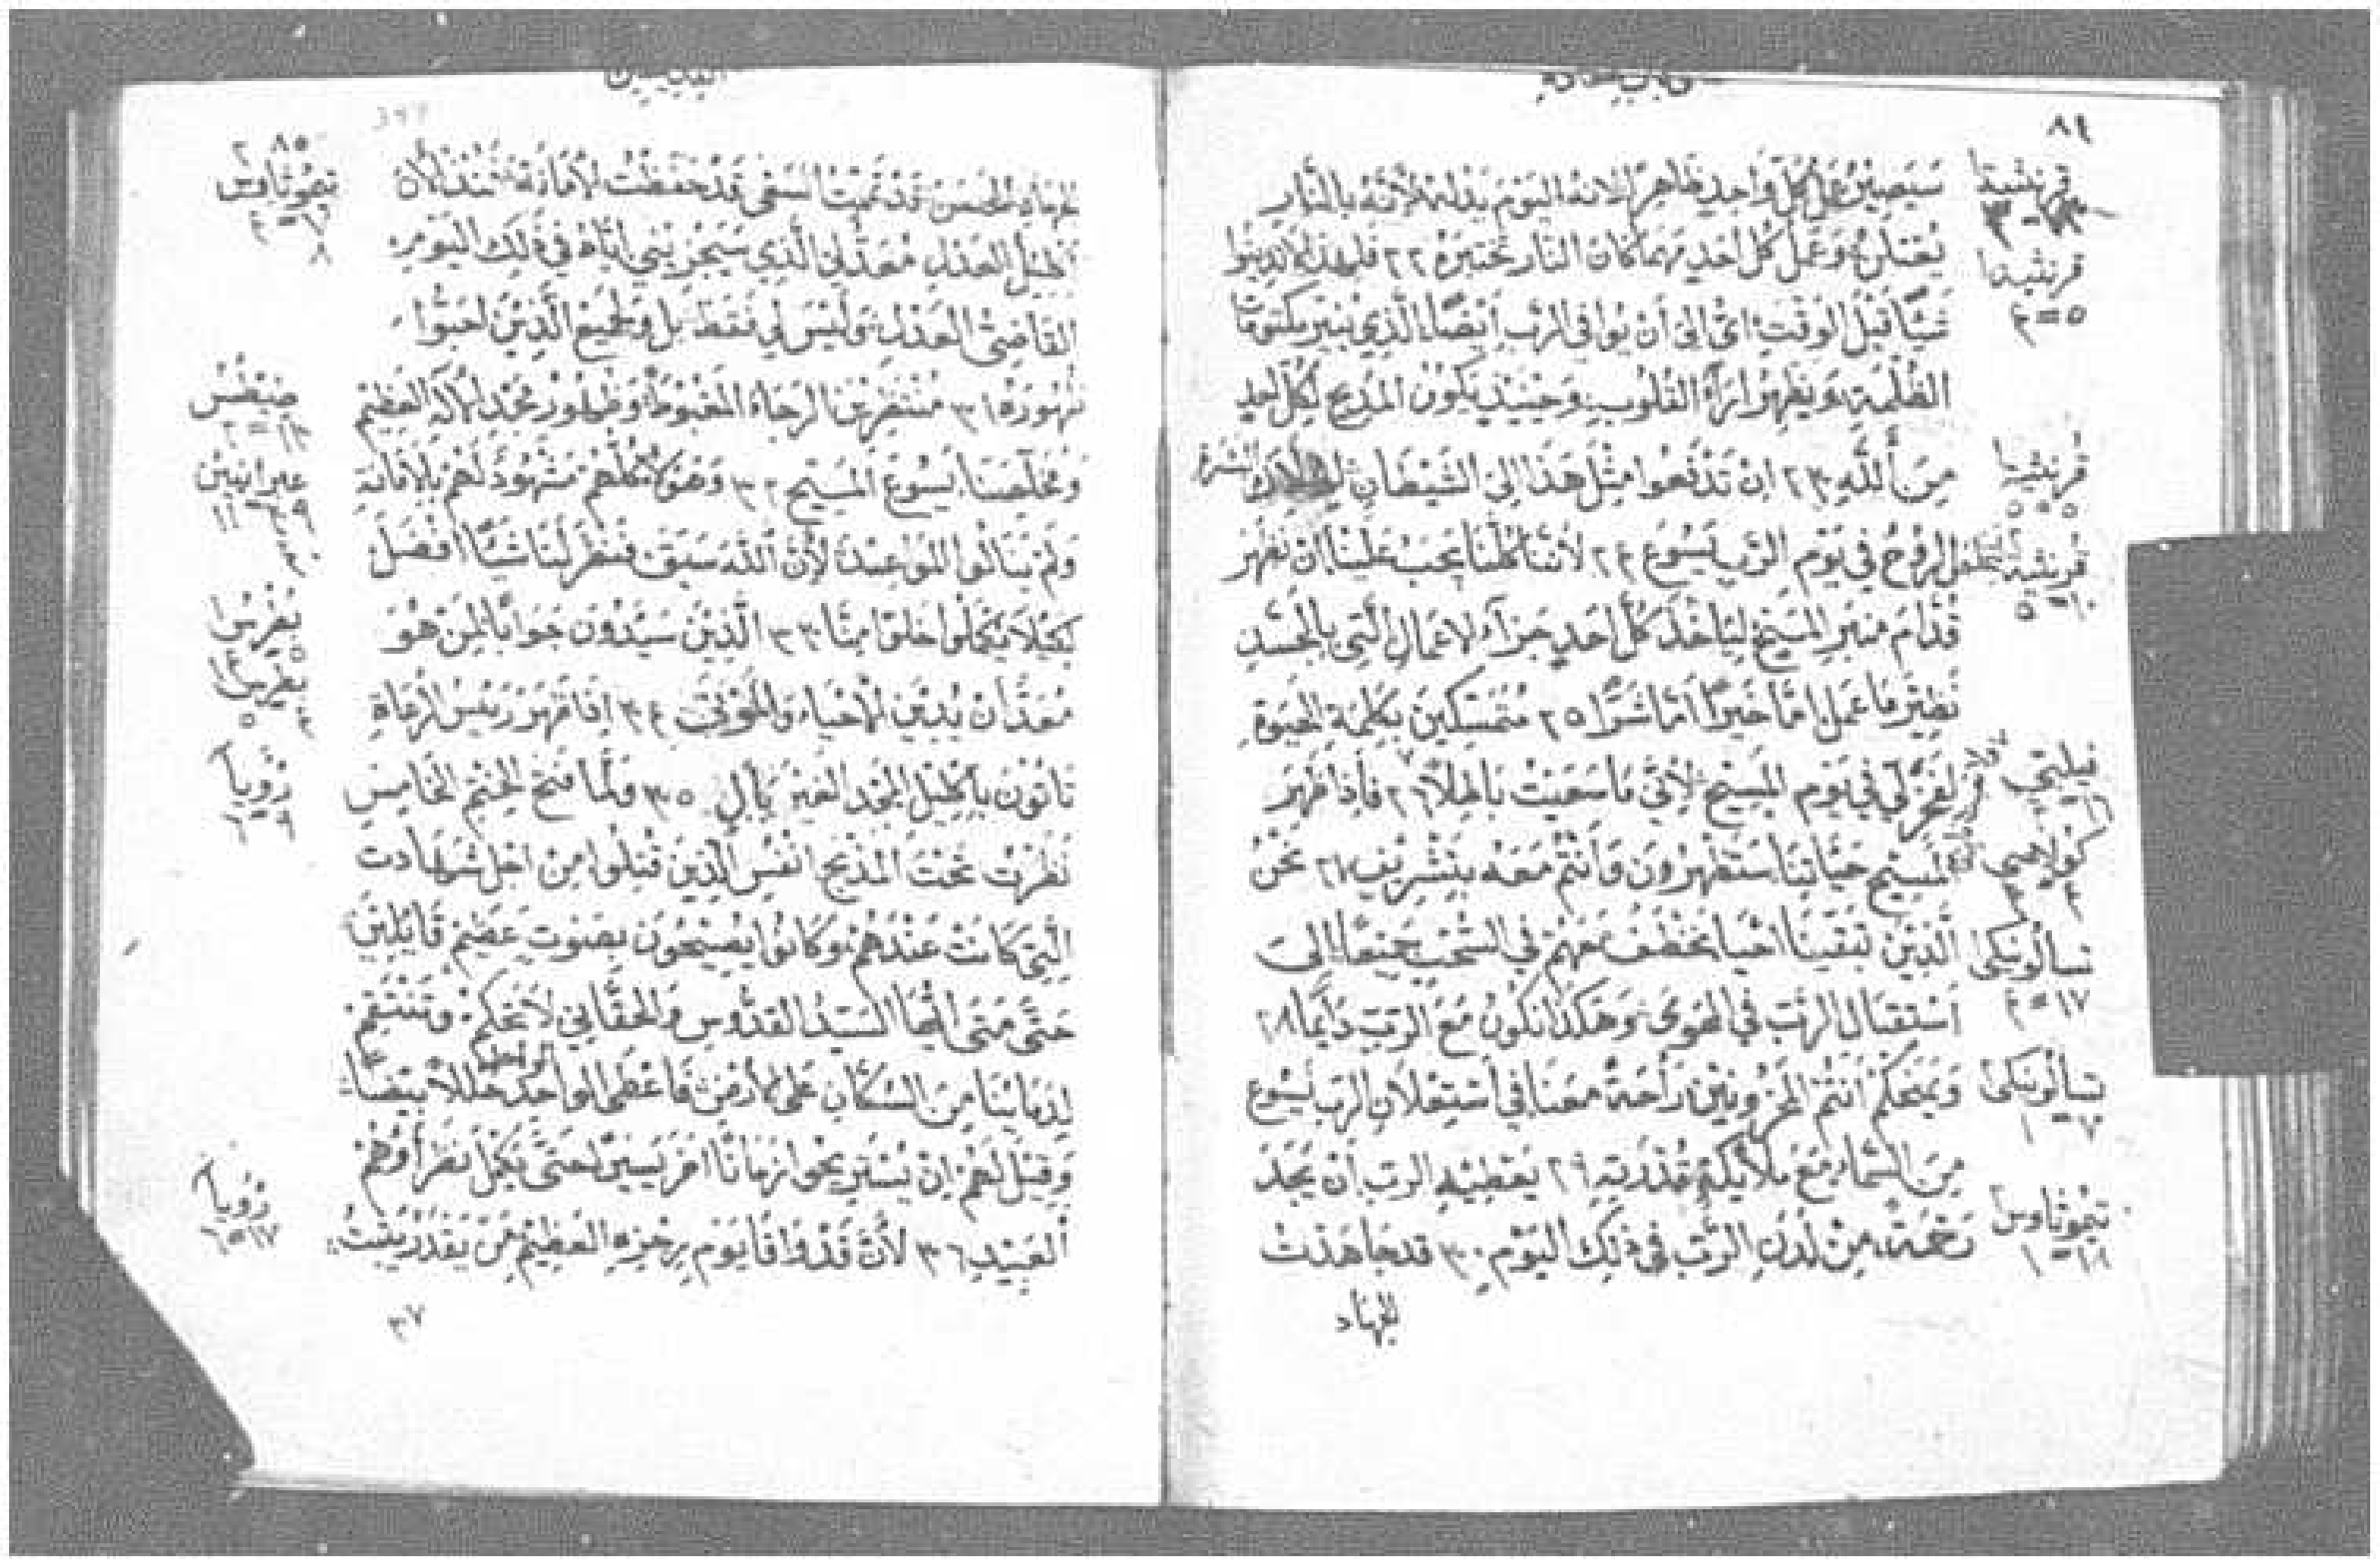 ٨٤
قرنثية
سيصير عمل كل واحد ظاهراً لانه اليوم يدله لأنّه بالنار
قرنثية
٥ = ٤
يعتلن وعمل كل احد مهما كان النار تختبره ٢٢ فلهذا لا تدينوا
شيّاً قبل الوقت اتى الى أن يوافى الرب أيضًا الذي ينير مكتومات
الظلمة ويظهر ارآء القلوب وحينيد يكون المديح لكل احد
قرنثية
٥ = ٥
من اللّه ٢٣ ان تدفعوا مثل هذا الى الشيطان لهلاك البشرة
قرنثية
١٠ = ٥
لتخلص الروح في يوم الرب يسوع ٢٤ لأننا كلنا يجب علينا ان نظهر
قدام منبر المسيح ليأخذ كل احد جزآء الاعمال التي بالجسد
نظير ما عمل امّا خيراً امّا شرّا ٢٥ متمسكين بكلمة الحيوة
لفخر لي في يوم المسيح لأني ما سعيت باطلاً ٢٦ فأذا ظهر
المسيح حياتنا ستظهرون وأنتم معه بتشريف ٢٧ نحن
تسالونيكى
١٧ = ٤
الذين تبقينا احيا نخطف معهم في السحب جميعًا الى
أستقبال الرب في الهوى وهكذا نكون مع الرب دايما ٢٨
تسالونيكى
٧ = ١
ويمنحكم انتم المحزونين راحة معنا في أستعلان الرب يسوع
من السماء مع ملايكة قدرته ٢٩ يعطيه الرب أن يجد
تيموثاوس
١٨ = ١
رحمة من لدن الرب في ذلك اليوم ٣٠ قد جاهدت
الجهاد
٨٥
تيموثاوس
الجهاد الحسن قد تممت السعى قد حفظت الأمانة فمنذ الأن
اكليل العدل معدّ لي الذي سيجزيني اياه في ذلك اليوم
القاضى العدل وليس لي فقط بل ولجميع الذين احبّوا
ظهوره ٣١ منتظرين الرجاء المغبوط وظهور مجد الآله العظيم
عبرانيين
ومخلصنا يسوع المسيح ٣٢ وهولا كلهم مشهود لهم بالامانة
ولم ينالوا المواعيد لأن اللّه سبق فنظر لنا شيّا افضل
بطرس
لكيلا يكملوا خلوًا منّا ٣٣ الذين سيدّون جوابًا لمن هو
بطرس
٥
معدّ ان يدين الأحياء والموتى ٣٤ اذا ظهر رئيس الرعاة
رؤيا
تاتون باكليل المجد الغير بال ٣٥ ولما فتح الختم الخامس
نظرت تحت المذبح انفس الذين قتلوا من اجل شهادت
التي كانت عندهم وكانوا يصيحون بصوت عضيم قايلين
حتّى متى ايّها السيّد القدّوس والحقّاني لا تحكم وتنتقم
لدماينا من السكّان على الأرض فاعطى الواحد حللا بيضًا
وقيل لهم ان يستريحوا زمانًا اخر يسيرًا حتّى يكمل نظرآوهم
رؤيا
١٧ = ٦
العبيد ٣٦ لأن قد وافا يوم رجزه العظيم من يقدر يثبت
٣٧